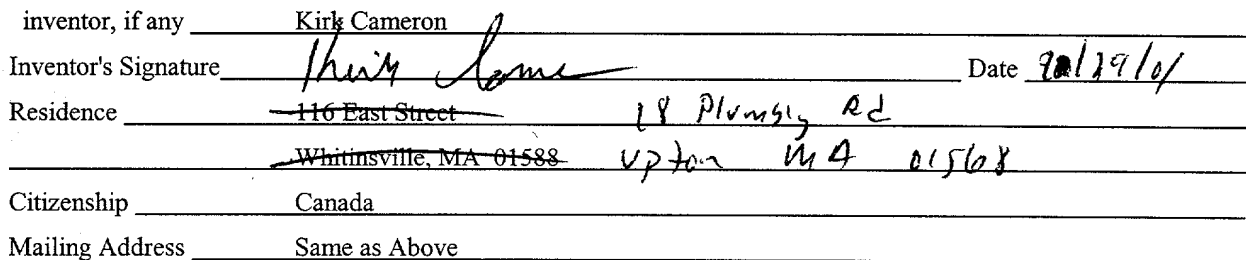 inventor, if any Kirk Cameron
Inventor's Signature Date
Residence 116 East Street 18 Rd
Whitinsville, MA 01588 Upton MA 01568
Citizenship Canada
Mailing Address Same as Above